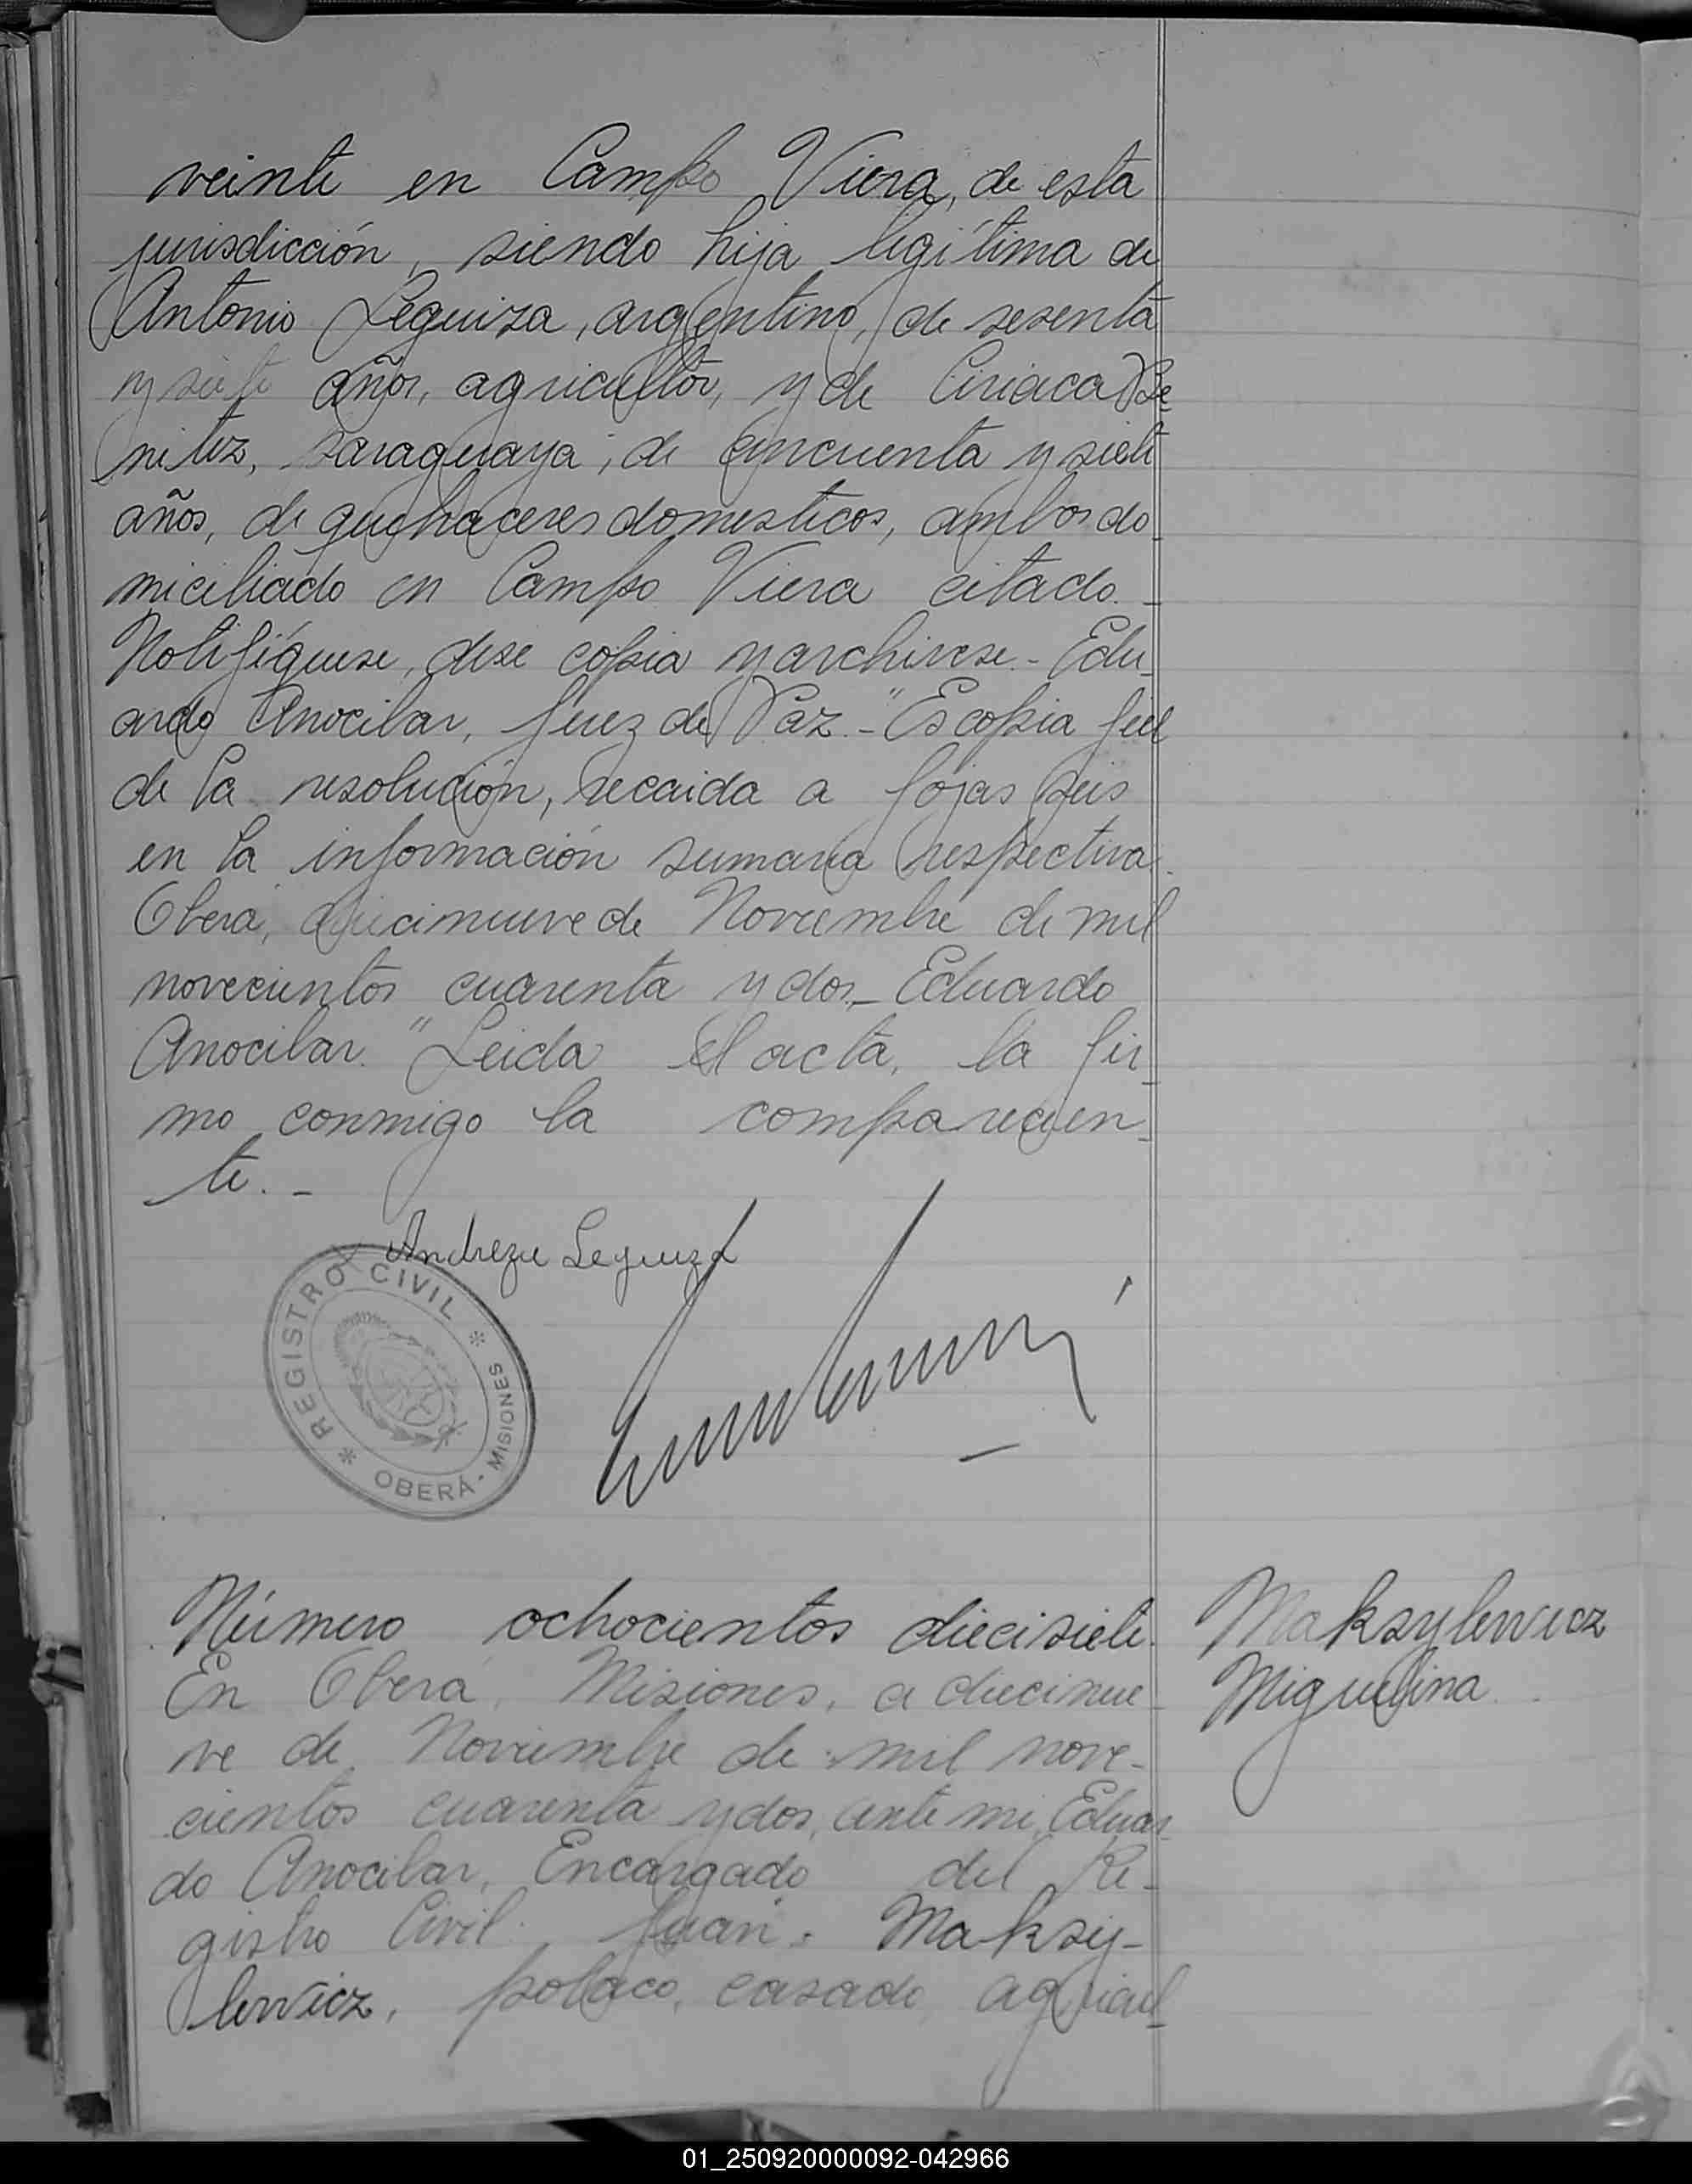 veinte en Campo Viera, de esta
jurisdicción, siendo hija legítima de
Antonio Leguiza, argentino, de sesenta
y siete años, agricultor, y de Ciriaca Be-
nitez, paraguaya, de cincuenta y siete
años, de quehaceres domesticos, ambos do-
miciliado en Campo Viera citado.-
Notifíquese, dese copia y archivese.- Edu-
ardo Anocibar, Juez de Paz.-" Es copia fiel
de la resolución, recaida a fojas seis
en la información sumaria respectiva.
Oberá, diecinueve de Noviembre de mil
novecientos cuarenta y dos.- Eduardo
Anocibar." Leida el acta, la fir-
mo conmigo la comparecien-
te.-
Andreza Leguiza
REGISTRO CIVIL
OBERÁ - MISIONES
Número ochocientos diecisiete.
Maksylewicz
Miguelina
En Oberá, Misiones, a diecinue-
ve de Noviembre de mil nove-
cientos cuarenta y dos, ante mi, Eduar-
do Anocibar, Encargado del Re-
gistro Civil, Juan Maksy-
lewicz, polaco, casado, agricul-
01_250920000092-042966